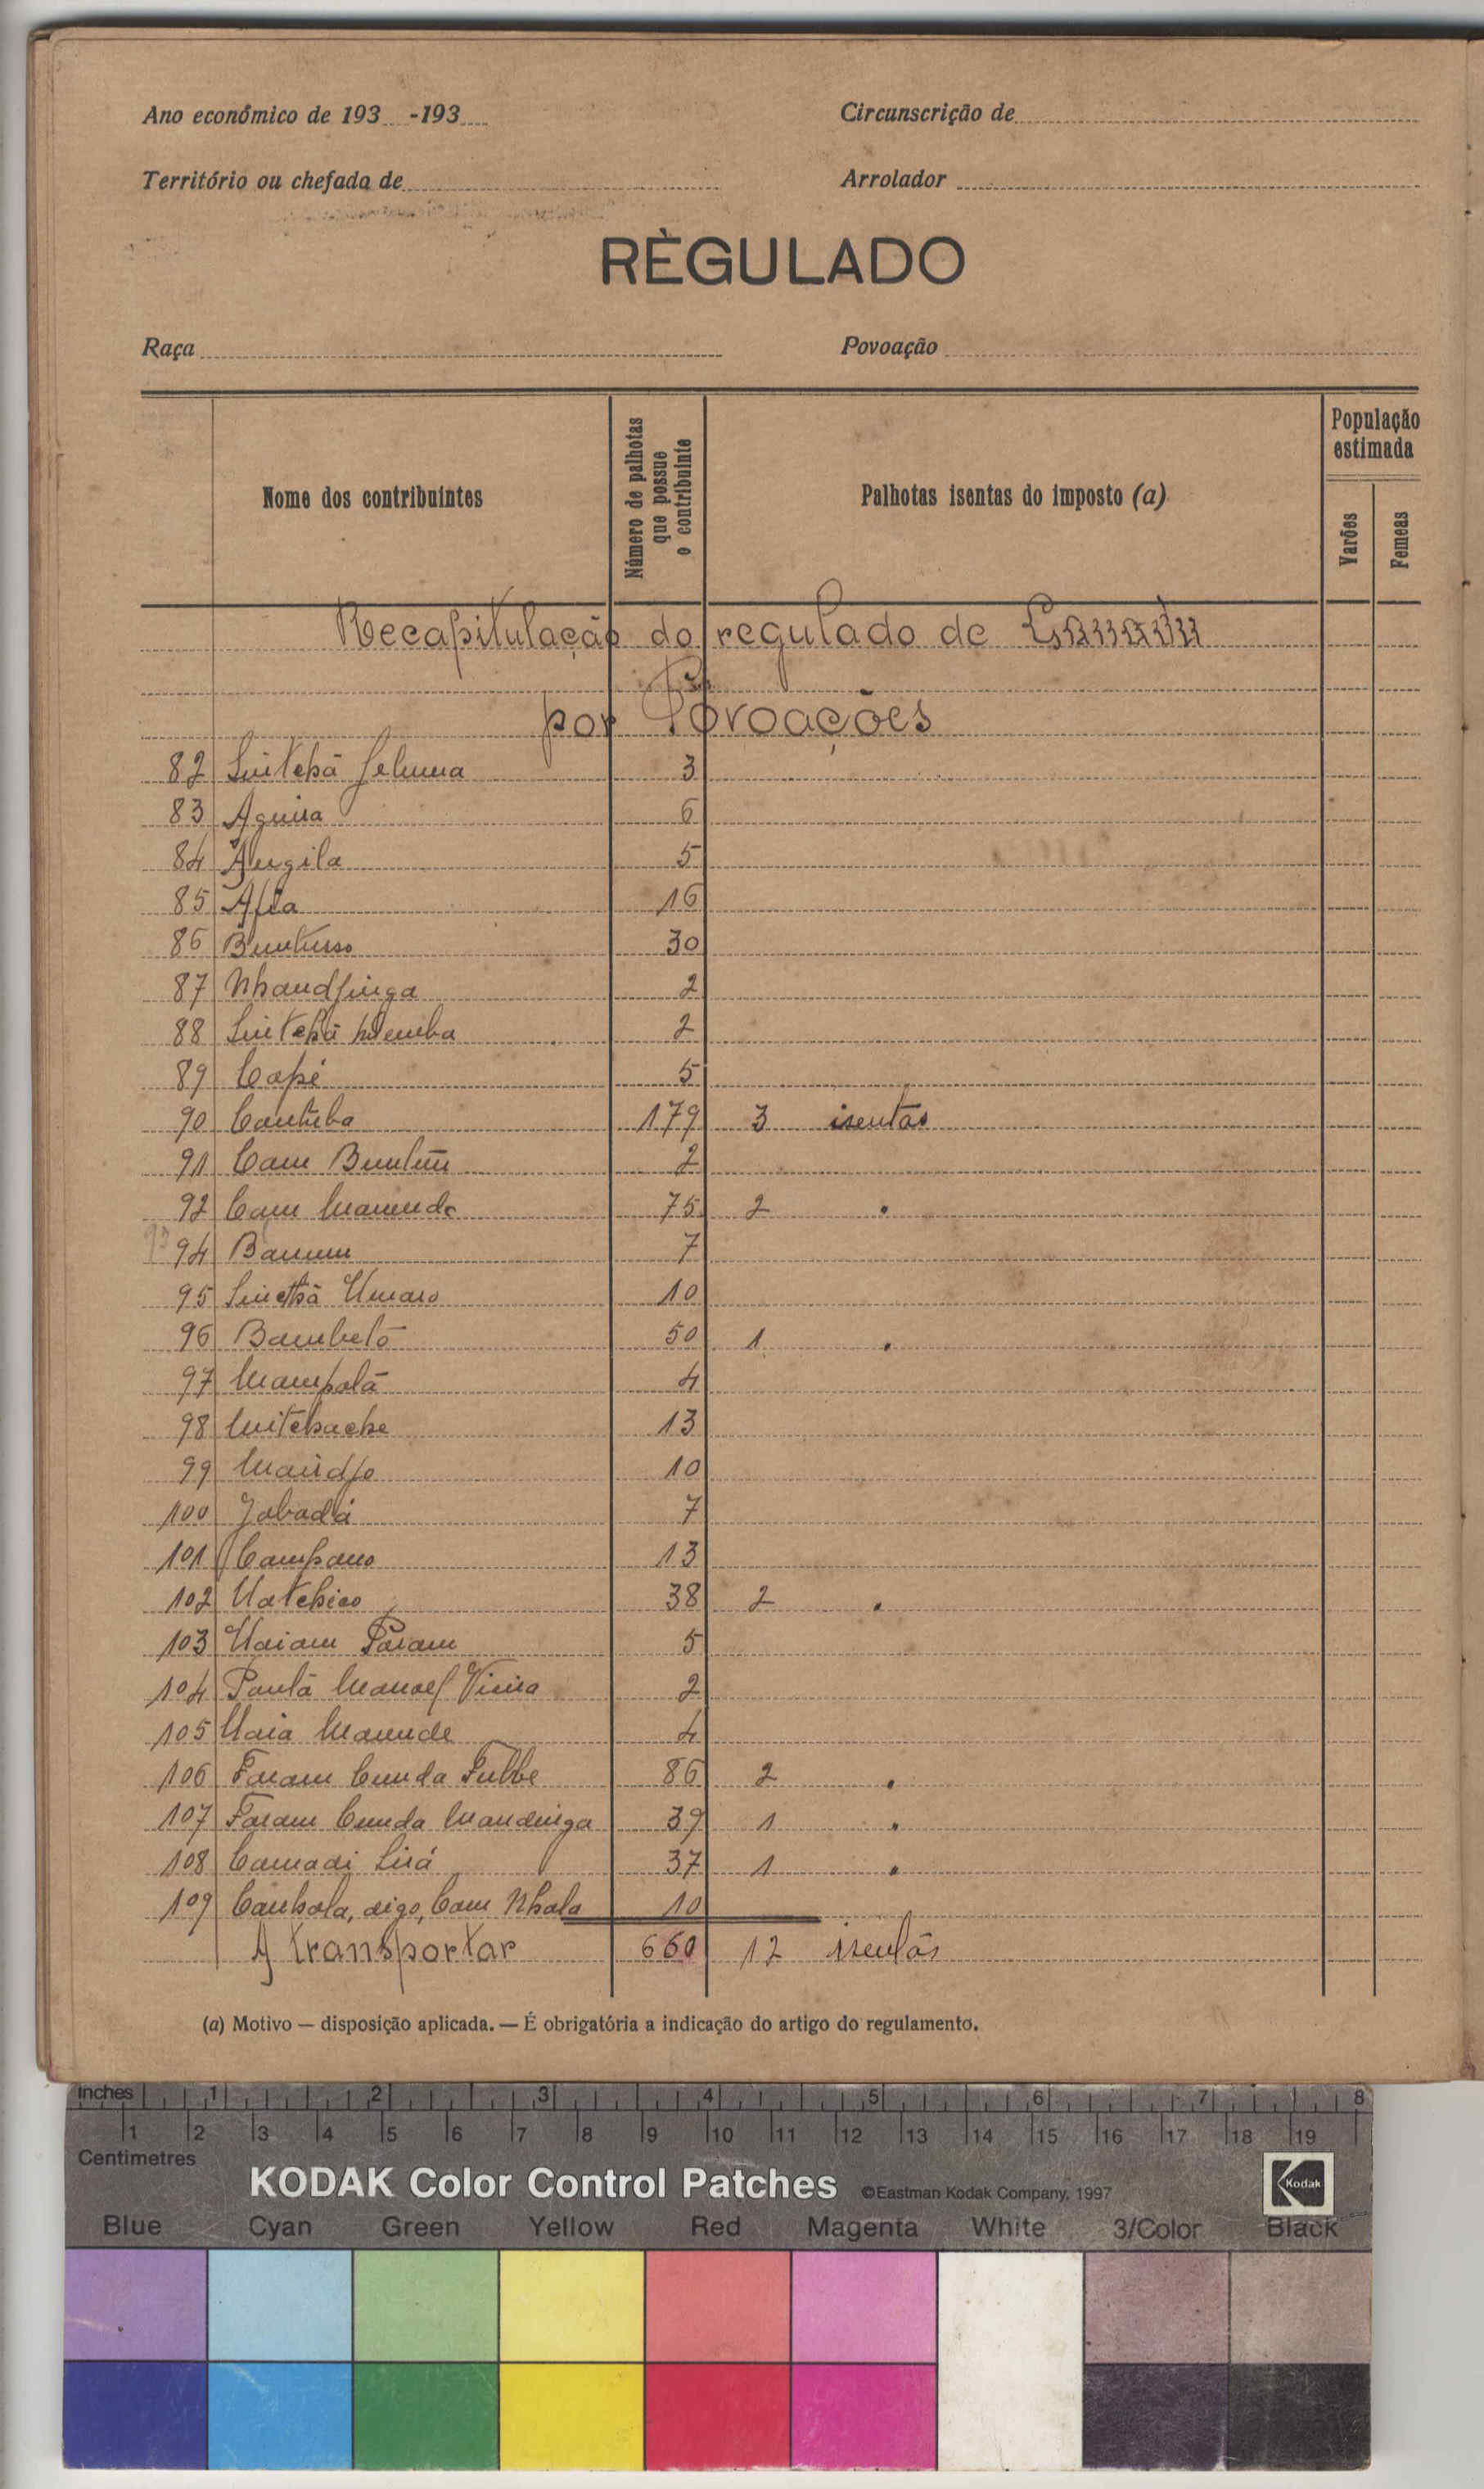 Ano económico de 193 -193
Circunscrição de
Território ou chefado de
Arrolador
RÈGULADO
Raça
Povoação
Nome dos contribuintes
Número de palhotas que possue o contribuinte
Palhotas isentas do imposto (a)
População estimada
Varões
Femeas
Recapitulação do regulado de
por Povoações
82 Sintchã 3
83 6
84 5
85 16
86 30
87 Nhandjinga 2
88 Sintchã 2
89 Capé 5
90 179 3 isentas
91 Cam 2
92 Cam Mamude 75 2 "
94 7
95 Sinchã Umaro 10
96 50 1 "
97 Mampatá 4
98 13
99 10
100 Jabadá 7
101 Campano 13
102 Uatchico 38 2 "
103 5
104 Manoel Vieira 2
105 Mamude 4
106 Faram Cunda Fulbe 86 2 "
107 Faram Cunda Mandinga 39 1 "
108 37 1 "
109 digo, Cam Nhala 10
A transportar 660 12 isentas
(a) Motivo — disposição aplicada. — É obrigatória a indicação do artigo do regulamento.
inches 1 2 3 4 5 6 7 8
1 2 3 4 5 6 7 8 9 10 11 12 13 14 15 16 17 18 19
Centimetres
KODAK Color Control Patches ©Eastman Kodak Company, 1997 Kodak
Blue Cyan Green Yellow Red Magenta White 3/Color Black